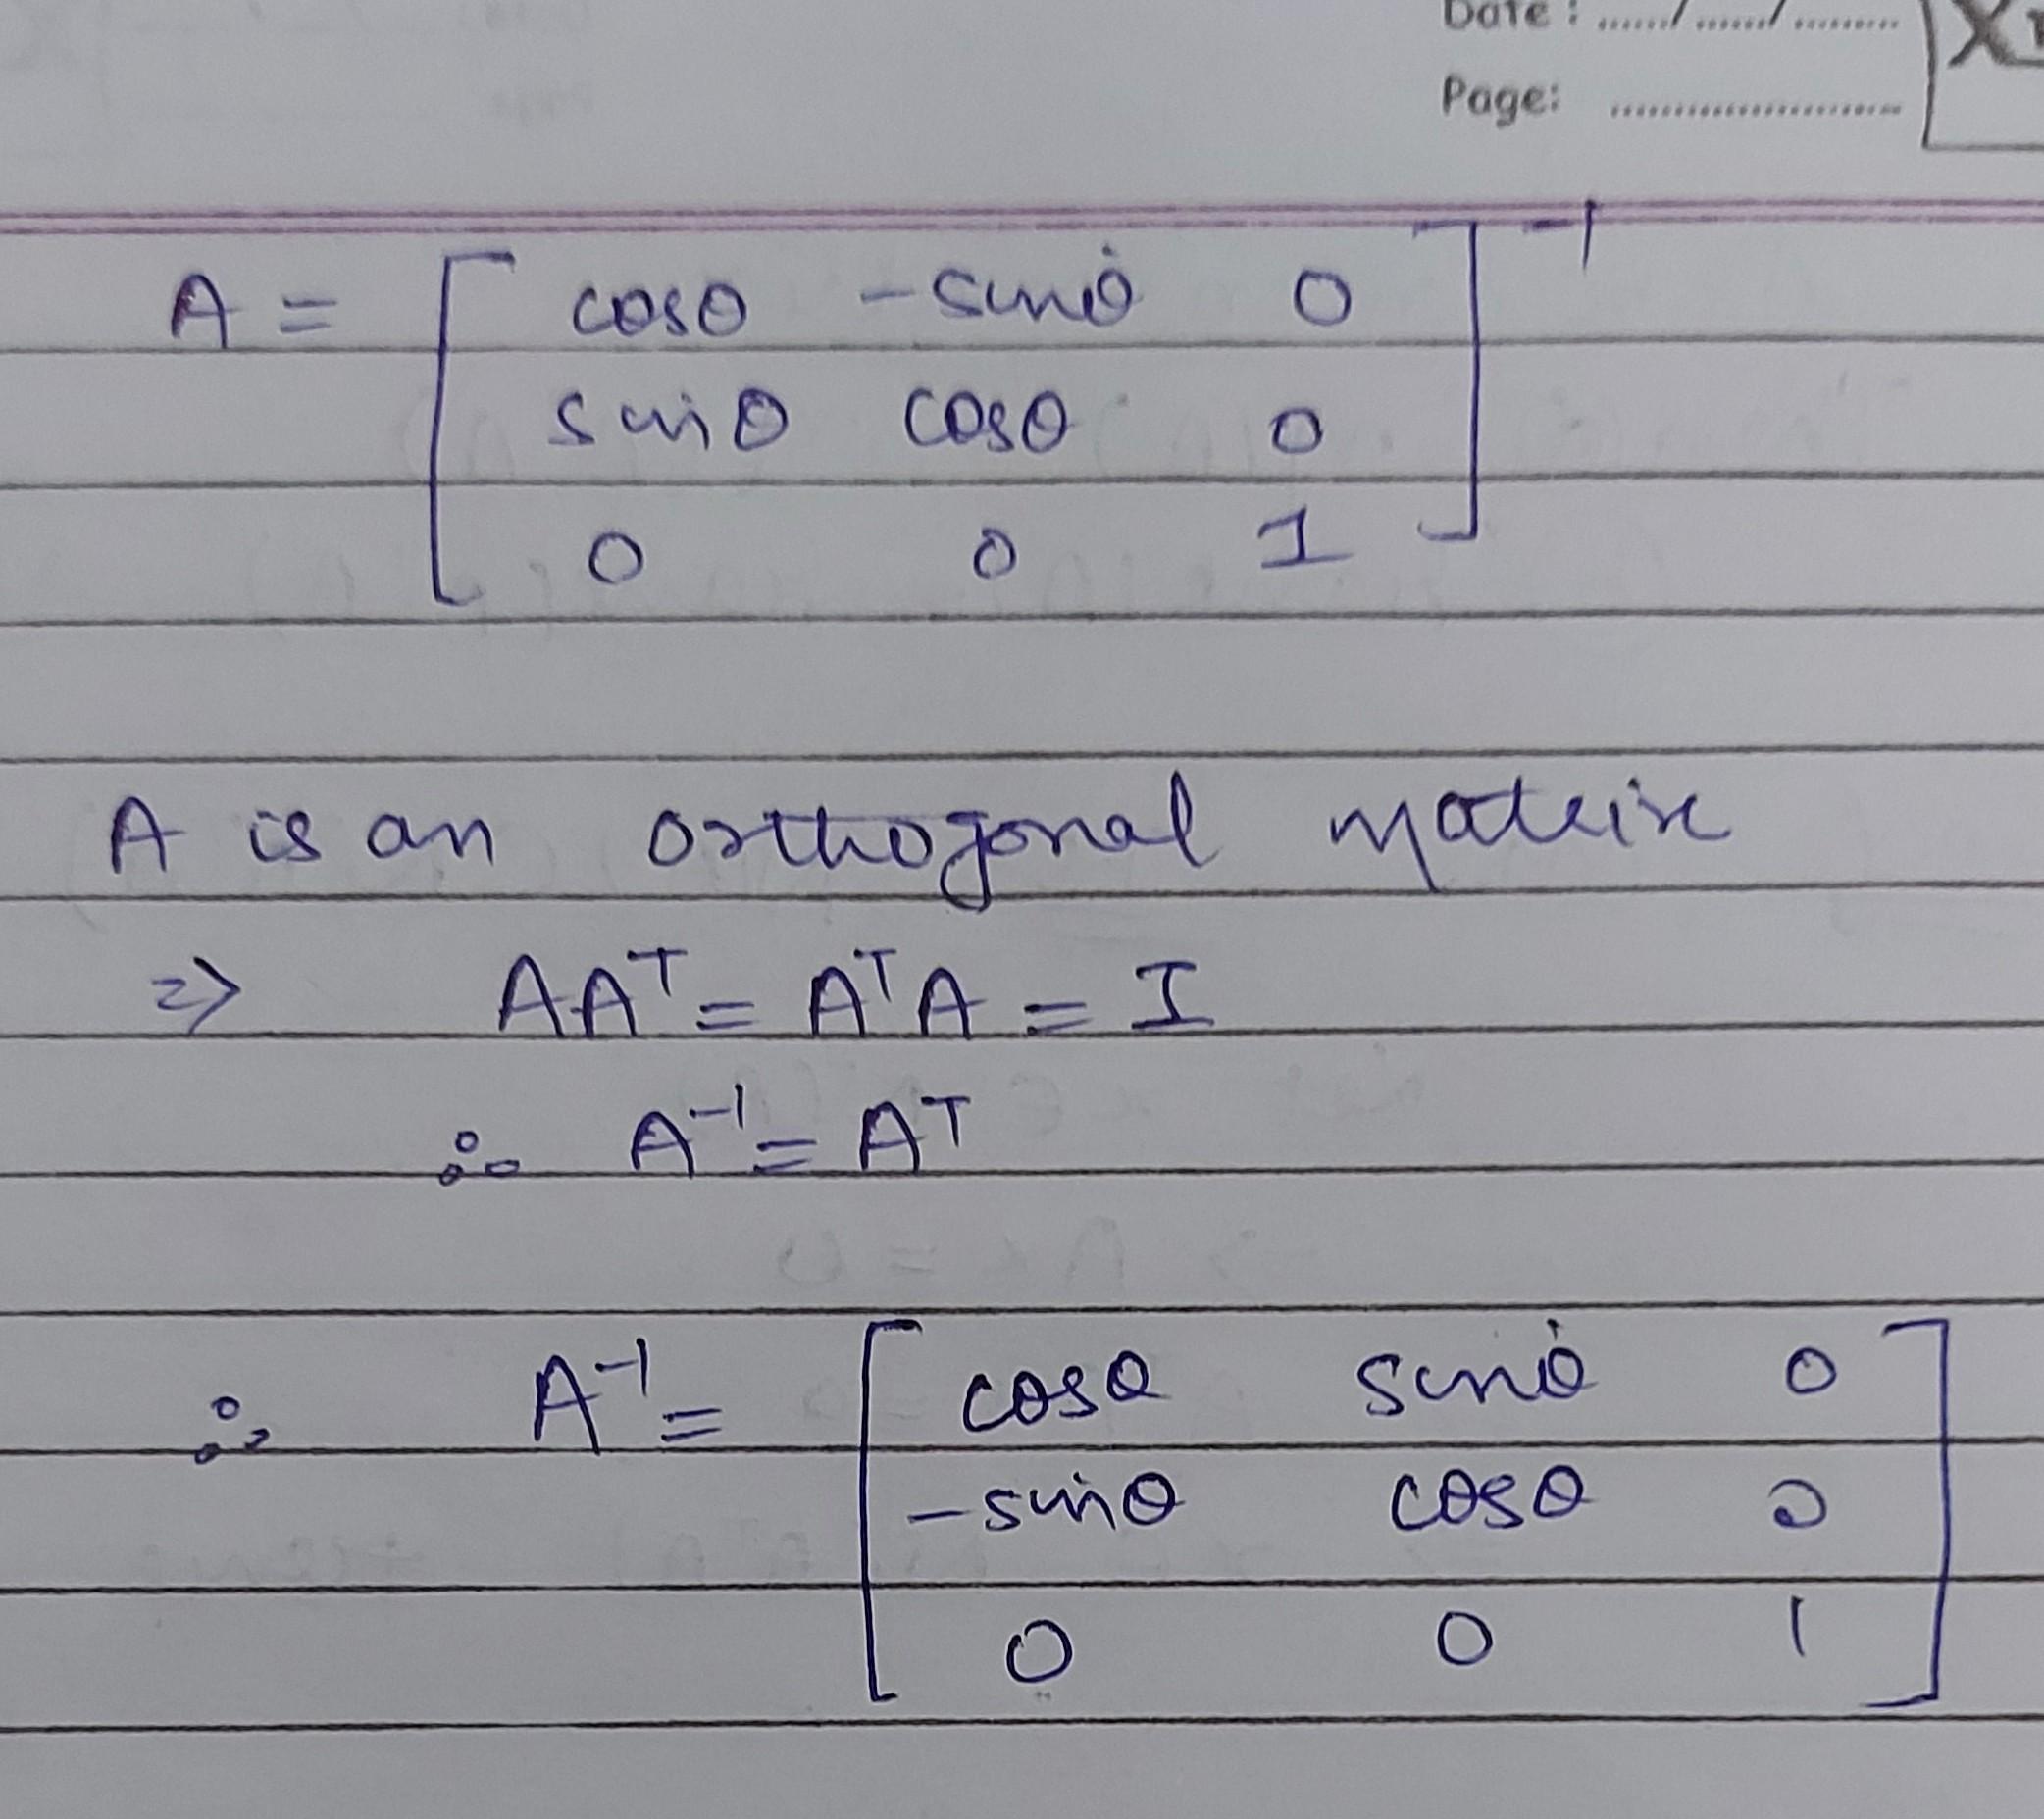 Date : ....../ ....../ .........
Page: ........................
A = [ cosθ -sinθ 0
sinθ cosθ 0
0 0 1 ]⁻¹
A is an orthogonal matrix
=> AAᵀ = AᵀA = I
∴ A⁻¹ = Aᵀ
∴ A⁻¹ = [ cosθ sinθ 0
-sinθ cosθ 0
0 0 1 ]